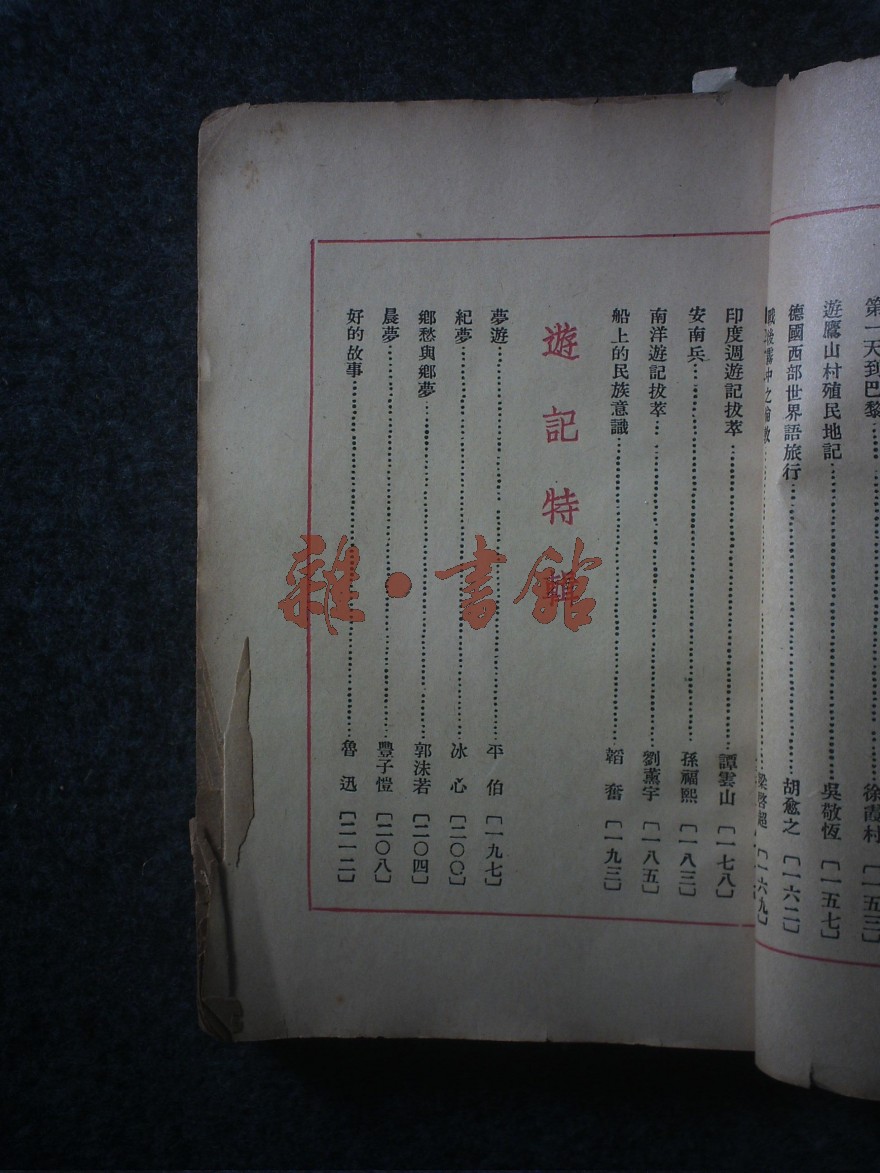 第一天到巴黎 徐霞村 [一五三]
遊鷹山村殖民地記 吳敬恆 [一五七]
德國西部世界語旅行 胡愈之 [一六二]
中之 梁啓超 [一六九]
印度週遊記拔萃 譚雲山 [一七八]
安南兵 孫福熙 [一八三]
南洋遊記拔萃 劉薰宇 [一八五]
船上的民族意識 韜奮 [一九三]
遊記特輯
夢遊 平伯 [一九七]
紀夢 冰心 [二〇〇]
鄉愁與鄉夢 郭沫若 [二〇四]
晨夢 豐子愷 [二〇八]
好的故事 魯迅 [二一二]
雜·書館